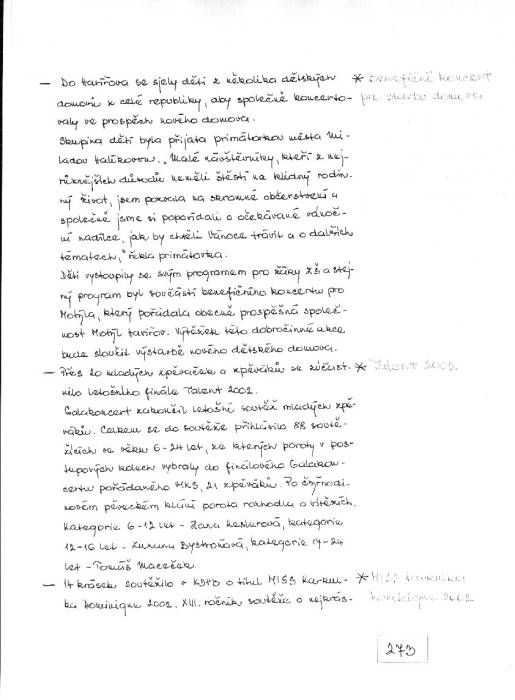 – Do Havířova se sjely děti z několika dětských * Benefiční koncert
domovů z celé republiky, aby společně koncerto- pro stavbu domova
valy ve prospěch nového domova.
Skupina dětí byla přijata primátorkou města Mi-
ladou Halíkovou. „Malé návštěvníky, kteří z nej-
různějších důvodů neměli štěstí na klidný rodin-
ný život, jsem pozvala na skromné občerstvení a
společně jsme si popovídali o očekávané vánoč-
ní nadílce, jak by chtěli Vánoce trávit a o dalších
tématech,“ řekla primátorka.
Děti vystoupily se svým programem pro žáky ZŠ a stej-
ný program byl součástí benefičního koncertu pro
Motýla, který pořádala obecně prospěšná společ-
nost Motýl Havířov. Výtěžek této dobročinné akce
bude sloužit výstavbě nového dětského domova.
– Přes 20 mladých zpěvaček a zpěváků se zúčast- * Talent 2002
nilo letošního finále Talent 2002.
Galakoncert zakončil letošní soutěž mladých zpě-
váků. Celkem se do soutěže přihlásilo 88 soutě-
žících ve věku 6-24 let, ze kterých poroty v pos-
tupových kolech vybraly do finálového Galakon-
certu pořádaného MKS, 21 zpěváků. Po čtyřhodi-
novém pěveckém klání porota rozhodla o vítězích.
Kategorie 6-12 let – Hana kategorie
12-16 let – Zuzana Bystroňová, kategorie 17-24
let – Tomáš Maceček.
– 14 krásek soutěžilo v KDPB o titul MISS Karkul- * MISS Karkulka
ka Dominique 2002. XIII. ročník soutěže o nejkrás- Dominique 2002
273